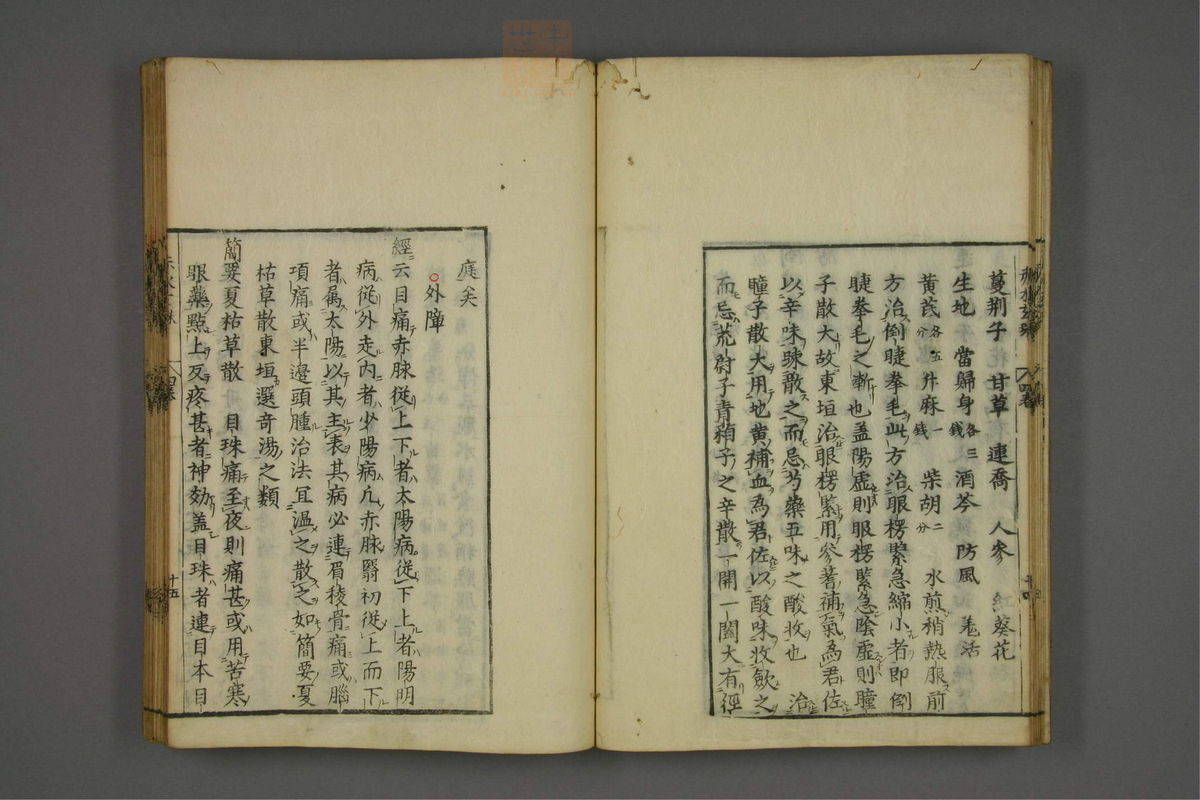 蔓荆子　甘草　連喬　人參　紅葵花
生地　當歸身各三錢　酒芩　防風　羗活
黄芪各五分　升麻一錢　柴胡二分　水煎稍熱服前
方治倒睫拳毛此方治眼楞緊急縮小者即倒
睫拳毛之漸也盖陽虚則眼楞緊急陰虚則瞳
子散大故東垣治眼楞緊用參蓍補氣為君佐
以辛味疎散之而忌芍藥五味之酸收也　治
瞳子散大用地黄補血為君佐以酸味收歛之
而忌茺蔚子青葙子之辛散一開一闔大有徑
庭矣
外障
經云目痛赤脉從上下者太陽病從下上者陽明
病從外走内者少陽病凡赤脉翳初從上而下
者属太陽以其主表其病必連眉稜骨痛或腦
項痛或半邊頭腫治法宜温之散之如簡要夏
枯草散東垣選奇湯之類
簡要夏枯草散　目珠痛至夜則痛甚或用苦寒
眼藥點上反疼甚者神効盖目珠者連目本目
四卷
十五